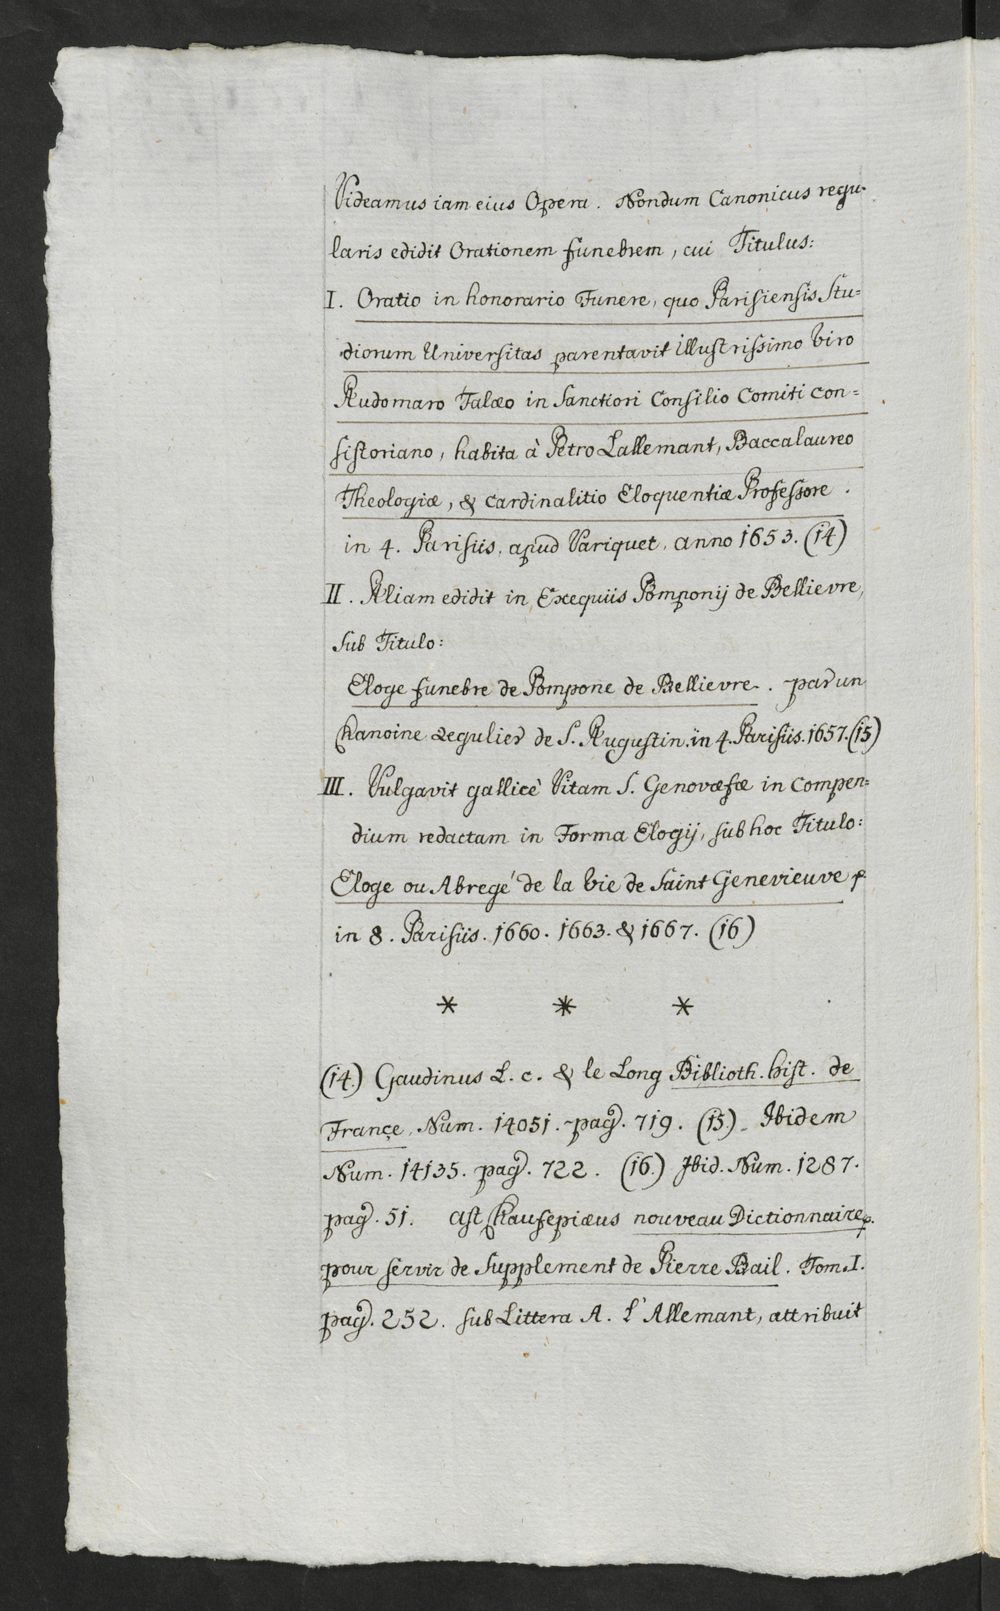 Videamus iam eius Opera. Nondum Canonicus regu-
laris edidit Orationem funebrem, cui Titulus:
I. Oratio in honorario Funere, quo Parisiensis Stu=
diorum Universitas parentavit illustrissimo Viro
Audomaro Talæo in Sanctiori Consilio Comiti con=
sistoriano, habita à Petro Lallemant, Baccalaureo
Theologiæ, & Cardinalitio Eloquentiæ Professore.
in 4. Parisiis, apud Variquet, anno 1653. (14)
II. Aliam edidit in Exequiis Pomponij de Bellievre,
sub Titulo:
Eloge funebre de Pompone de Bellievre. par un
Chanoine Regulier de S. Augustin. in 4. Parisiis. 1657. (15)
III. Vulgavit gallicè Vitam S. Genovæfæ in compen=
dium redactam in Forma Elogij, sub hoc Titulo:
Eloge ou Abregé de la Vie de Saint Genevieuve
in 8. Parisiis. 1660. 1663. & 1667. (16)
* * *
(14.) Gaudinus L. c. & le Long Biblioth. hist. de
Françe, Num. 14051. pag. 719. (15.) Ibidem
Num. 14135. pag. 722. (16.) Ibid. Num. 1287.
pag. 51. Ast Chaufepiæus nouveau Dictionnaire
pour servir de Supplement de Pierre Bail. Tom. I.
pag. 252. sub Littera A. l'Allemant, attribuit